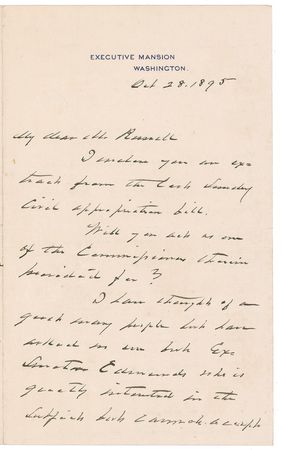 EXECUTIVE MANSION
WASHINGTON.
Oct 28. 1895
My dear Mr. Russell
I enclose you an ex-
tract from the last Sunday
Civil appropriation bill.
Will you act as one
of the Commissioners therein
provided for?
I have thought of a
good many people but have
asked no one but Ex-
Senator Edmunds who is
greatly interested in the
subject but cannot accept